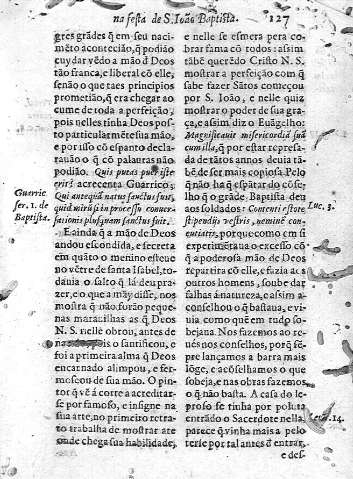 na festa de S. Ioão Baptista. 127
gres grãdes q̃ em seu naci-
mẽto acontecião, q̃ podião
cuydar vẽdo a mão đ Deos
tão franca, e liberal cõ elle,
senão o que taes principios
prometião, q̃ era chegar ao
cume de toda a perfeição,
pois nelles tinha Deos pos-
to particularmẽte sua mão,
e por isso cõ espanto decla-
rauão o q̃ cõ palauras não
podião. Quis putas puer iste
erit? acrecenta Guarrico;
Qui antequã natus sanctus fuit,
quid mirũ si in processu conuer-
sationis plusquam sanctus fuit.
E ainda q̃ a mão de Deos
andou escondida, e secreta
em quãto o menino esteue
no vẽtre de santa Isabel, to-
dauia o salto q̃ lá deu pra-
zer, e o que a mãy disse, nos
mostra q̃ não forão peque-
nas marauilhas as q̃ Deos
N. S. nelle obrou, antes de
nacido, pois o santificou, e
foi a primeira alma q̃ Deos
encarnado alimpou, e fer-
moseou de sua mão. O pin-
tor q̃ vẽ á corte a acreditar-
se por famoso, e insigne na
sua arte, no primeiro retra-
to trabalha de mostrar ate
onde chega sua habilidade,
Guarric.
ser. 1. de
Baptista.
e nelle se esmera pera co-
brar fama cõ todos: assim
tãbẽ querẽdo Cristo N. S.
mostrar a perfeição com q̃
sabe fazer Sãtos começou
por S. Ioão, e nelle quiz
mostrar o poder de sua gra-
ça, e assim diz o Euãgelho:
Magnificauit misericordiã suã
cum illa, q̃ por estar represa-
da de tãtos annos deuia tã-
bẽ de ser mais copiosa. Pelo
q̃ não ha q̃ espãtar do cõse-
lho q̃ o grãde Baptista deu
aos soldados: Contenti estote
stipendiis vestris, neminẽ con-
cutiatis, porque como em si
experimẽtaua o excesso cõ
q̃ a poderosa mão de Deos
repartira cõ elle, e fazia aos
outros homens, soube dar
falhas á natureza, e assim a-
conselhou o q̃ bastaua, e vi-
uia como quẽ em tudo so-
bejana. Nos fazemos ao re-
ués nos conselhos, porq̃ sẽ-
pre lançamos a barra mais
lõge, e acõselhamos o que
sobeja, e nas obras fazemos
o q̃ não basta. A casa do le-
proso se tinha por poluta
entrãdo o Sacerdote nella,
parece q̃ vinha mais a pelo
terse por tal antes đ entrar,
e des-
Luc. 3.
Leuit. 14.